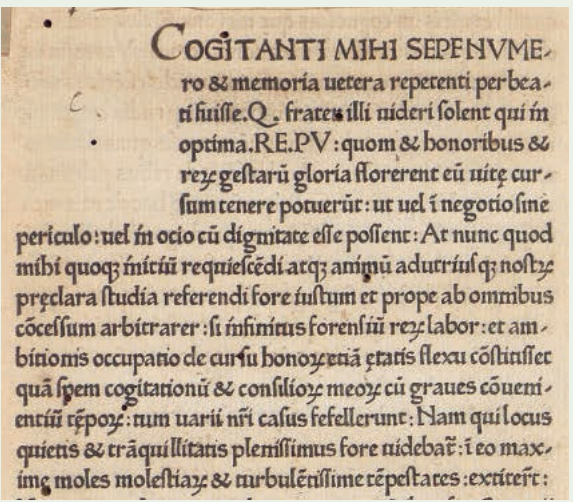 COGITANTI MIHI SEPENVME-
ro & memoria uetera repetenti perbea-
ti fuiſſe.Q. frater illi uideri ſolent qui in
optima.RE.PV: quom & honoribus &
reꝝ geſtarū gloria florerent eū uitę cur-
ſum tenere potuerūt: ut uel ī negotio ſine
periculo: uel in ocio cū dignitate eſſe poſſent: At nunc quod
mihi quoqꝫ initiū requieſcēdi atqꝫ animū adutriuſqꝫ noſtꝝ
pręclara ſtudia referendi fore iuſtum et prope ab omnibus
cōceſſum arbitrarer: ſi infinitus forenſiū reꝝ labor: et am-
bitionis occupatio de curſu honoꝝ etiā ętatis flexu cōſtitiſſet
quā ſpem cogitationū & conſilioꝝ meoꝝ cū graues cōueni-
entiū tēpoꝝ: tum uarii nr̄i caſus fefellerunt: Nam qui locus
quietis & trāquillitatis pleniſſimus fore uidebat̃: ī eo max-
imę moles moleſtiaꝝ & turbulētiſſime tēpeſtates: extiter̃t: